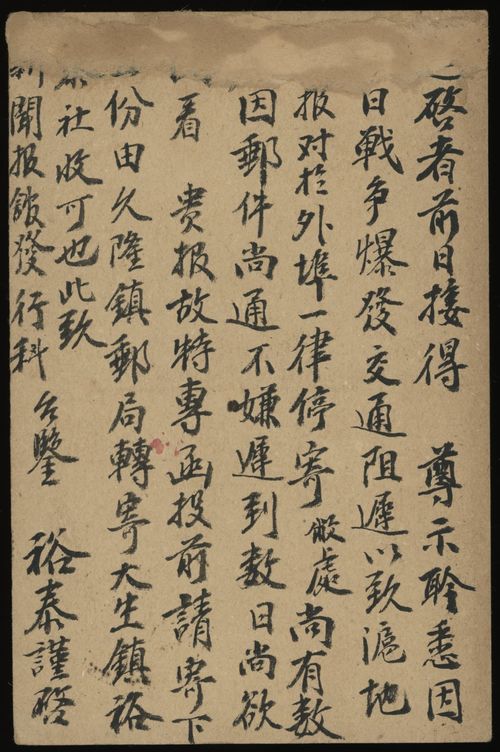 啓者前日接得　尊示聆悉因
日戰争爆發交通阻遲以致滬地
报对於外埠一律停寄敝處尚有数
因郵件尚通不嫌遲到数日尚欲
看　貴报故特專函投前請寄下
份由久隆鎮郵局轉寄大生鎮裕
社收可也此致
新聞报館發行科　台鑒　裕泰謹啓